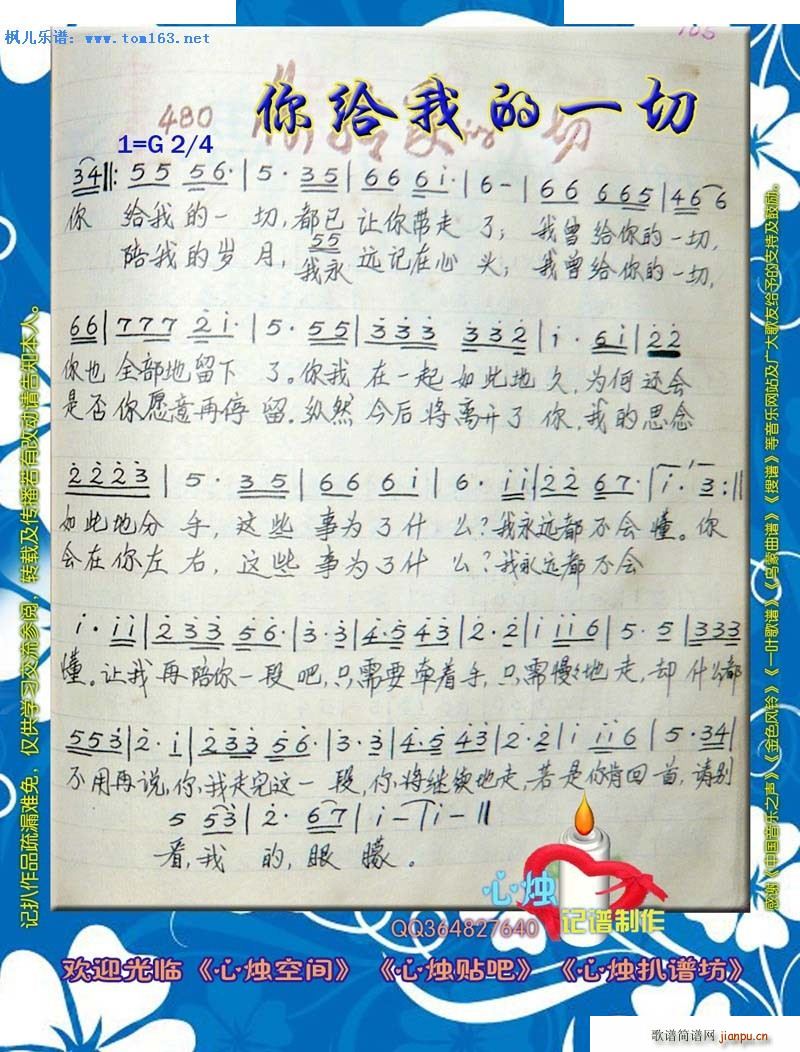 枫儿乐谱：www.tom163.net
105
480 你给我的一切
1=G 2/4
34 ‖: 55 56· | 5· 35 | 66 6i· | 6 - | 66 665 | 46 6
你 给我的一 切，都已 让你带走 了；我曾给你的一切，
55
陪我的岁 月，我永 远记在心 头；我曾给你的一切，
66 | 777 2̇i· | 5· 55 | 3̇3̇3̇ 3̇3̇2̇ | i· 6i | 2̇2̇
你也 全部地留下 了。你我 在一起 如此地 久，为何还会
是否 你愿意再停 留。纵然 今后将离开了 你，我的思念
2̇2̇2̇3̇ | 5· 35 | 66 6i | 6· ii | 2̇2̇ 67· | i· 3 :‖
如此地分 手，这些 事为了什 么？我永远都不会 懂。你
会在你左 右，这些 事为了什 么？我永远都不会
i· ii | 2̇3̇3̇ 5̇6̇· | 3̇·3̇ | 4̇·5̇ 4̇3̇ | 2̇·2̇ | i ii6 | 5·5 | 333
懂。让我 再陪你一段 吧，只需要牵着手，只需慢慢地走，却 什么都
553̇ | 2̇· i | 2̇3̇3̇ 5̇6̇· | 3̇·3̇ | 4̇·5̇ 4̇3̇ | 2̇·2̇ | i ii6 | 5· 34 |
不用再说，你，我走完这一 段，你，将继续地走，若是你肯回首，请别
5 53̇ | 2̇· 67 | i - | i - ‖
看，我 的，眼 朦。
心烛
QQ364827640 记谱制作
欢迎光临《心烛空间》《心烛贴吧》《心烛扒谱坊》
记扒作品疏漏难免，仅供学习交流参阅，转载及传播若有改动请告知本人。
感谢《中国音乐之声》《金色风铃》《一叶歌谱》《乌蒙曲谱》《搜谱》等音乐网站及广大歌友给予的支持及鼓励。
歌谱简谱网
jianpu.cn